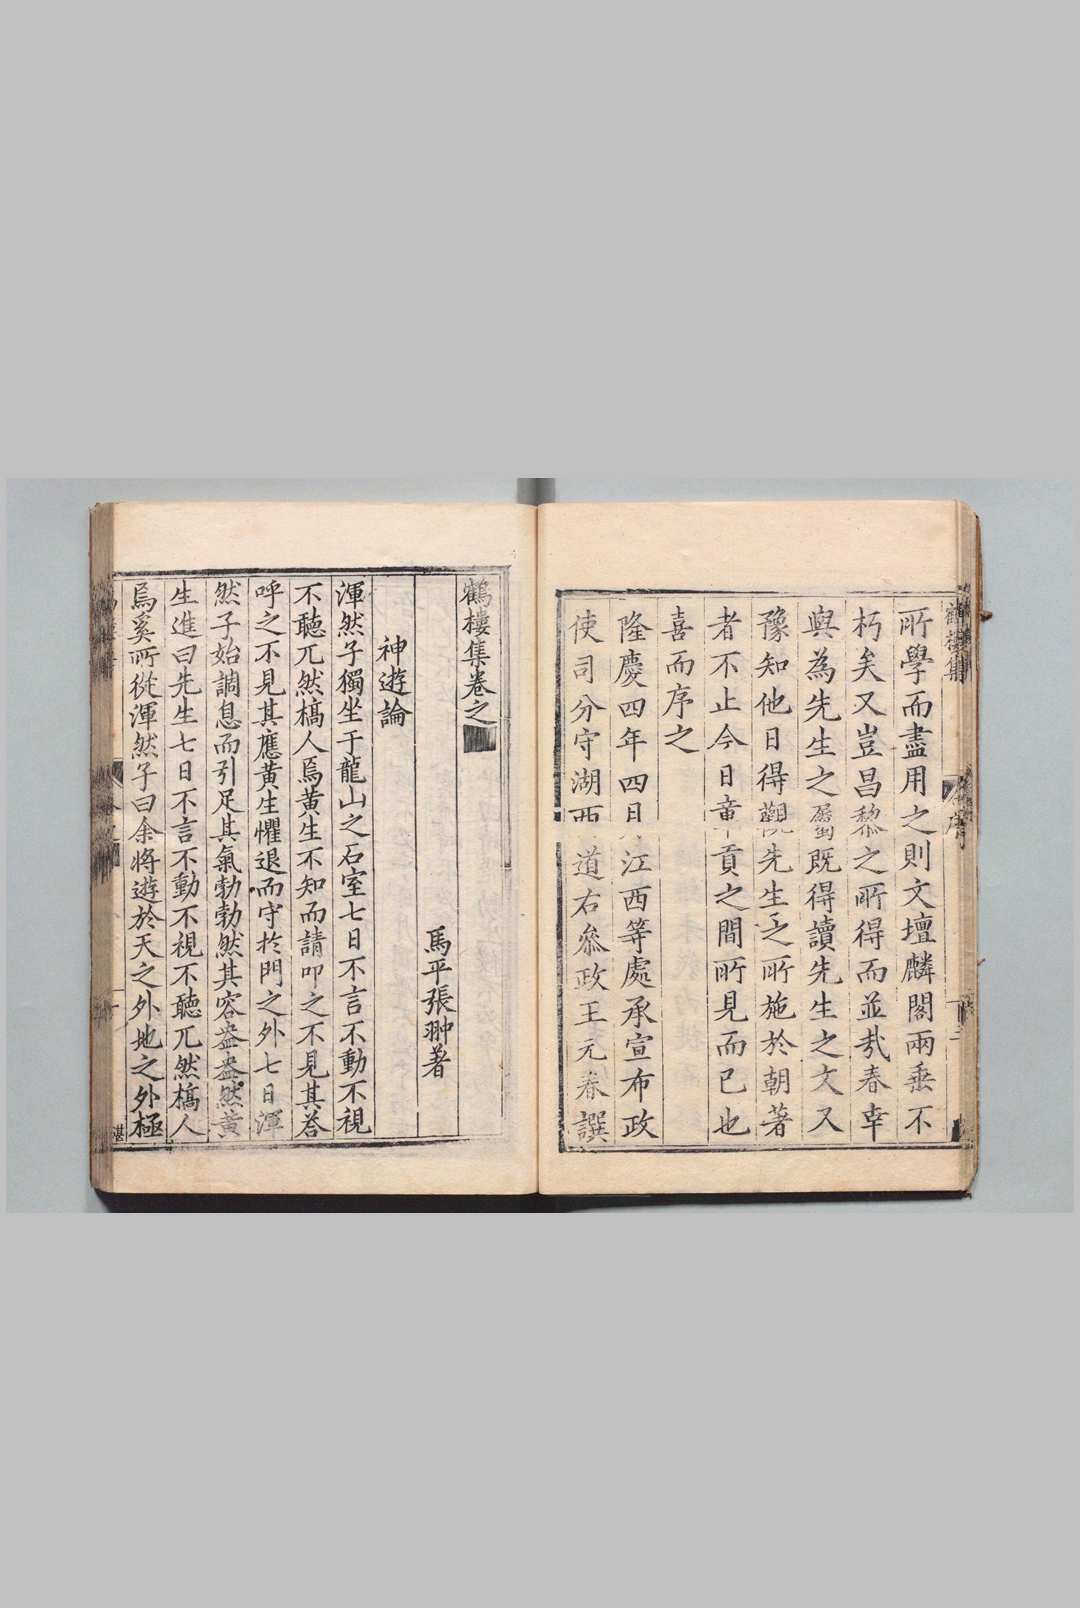 所學而盡用之則文壇麟閣兩垂不
朽矣又豈昌黎之所得而並㢤春幸
與為先生之屬既得讀先生之文又
豫知他日得觀先生之所施於朝著
者不止今日章貢之間所見而已也
喜而序之
隆慶四年四月江西等處承宣布政
使司分守湖西道右叅政王元春撰
鶴樓集卷之
馬平張翀著
神遊論
渾然子獨坐于龍山之石室七日不言不動不視
不聽兀然槁人焉黃生不知而請叩之不見其荅
呼之不見其應黃生懼退而守於門之外七日渾
然子始調息而引足其氣勃勃然其容盎盎然黃
生進曰先生七日不言不動不視不聽兀然槁人
焉奚所從渾然子曰余將遊於天之外地之外極